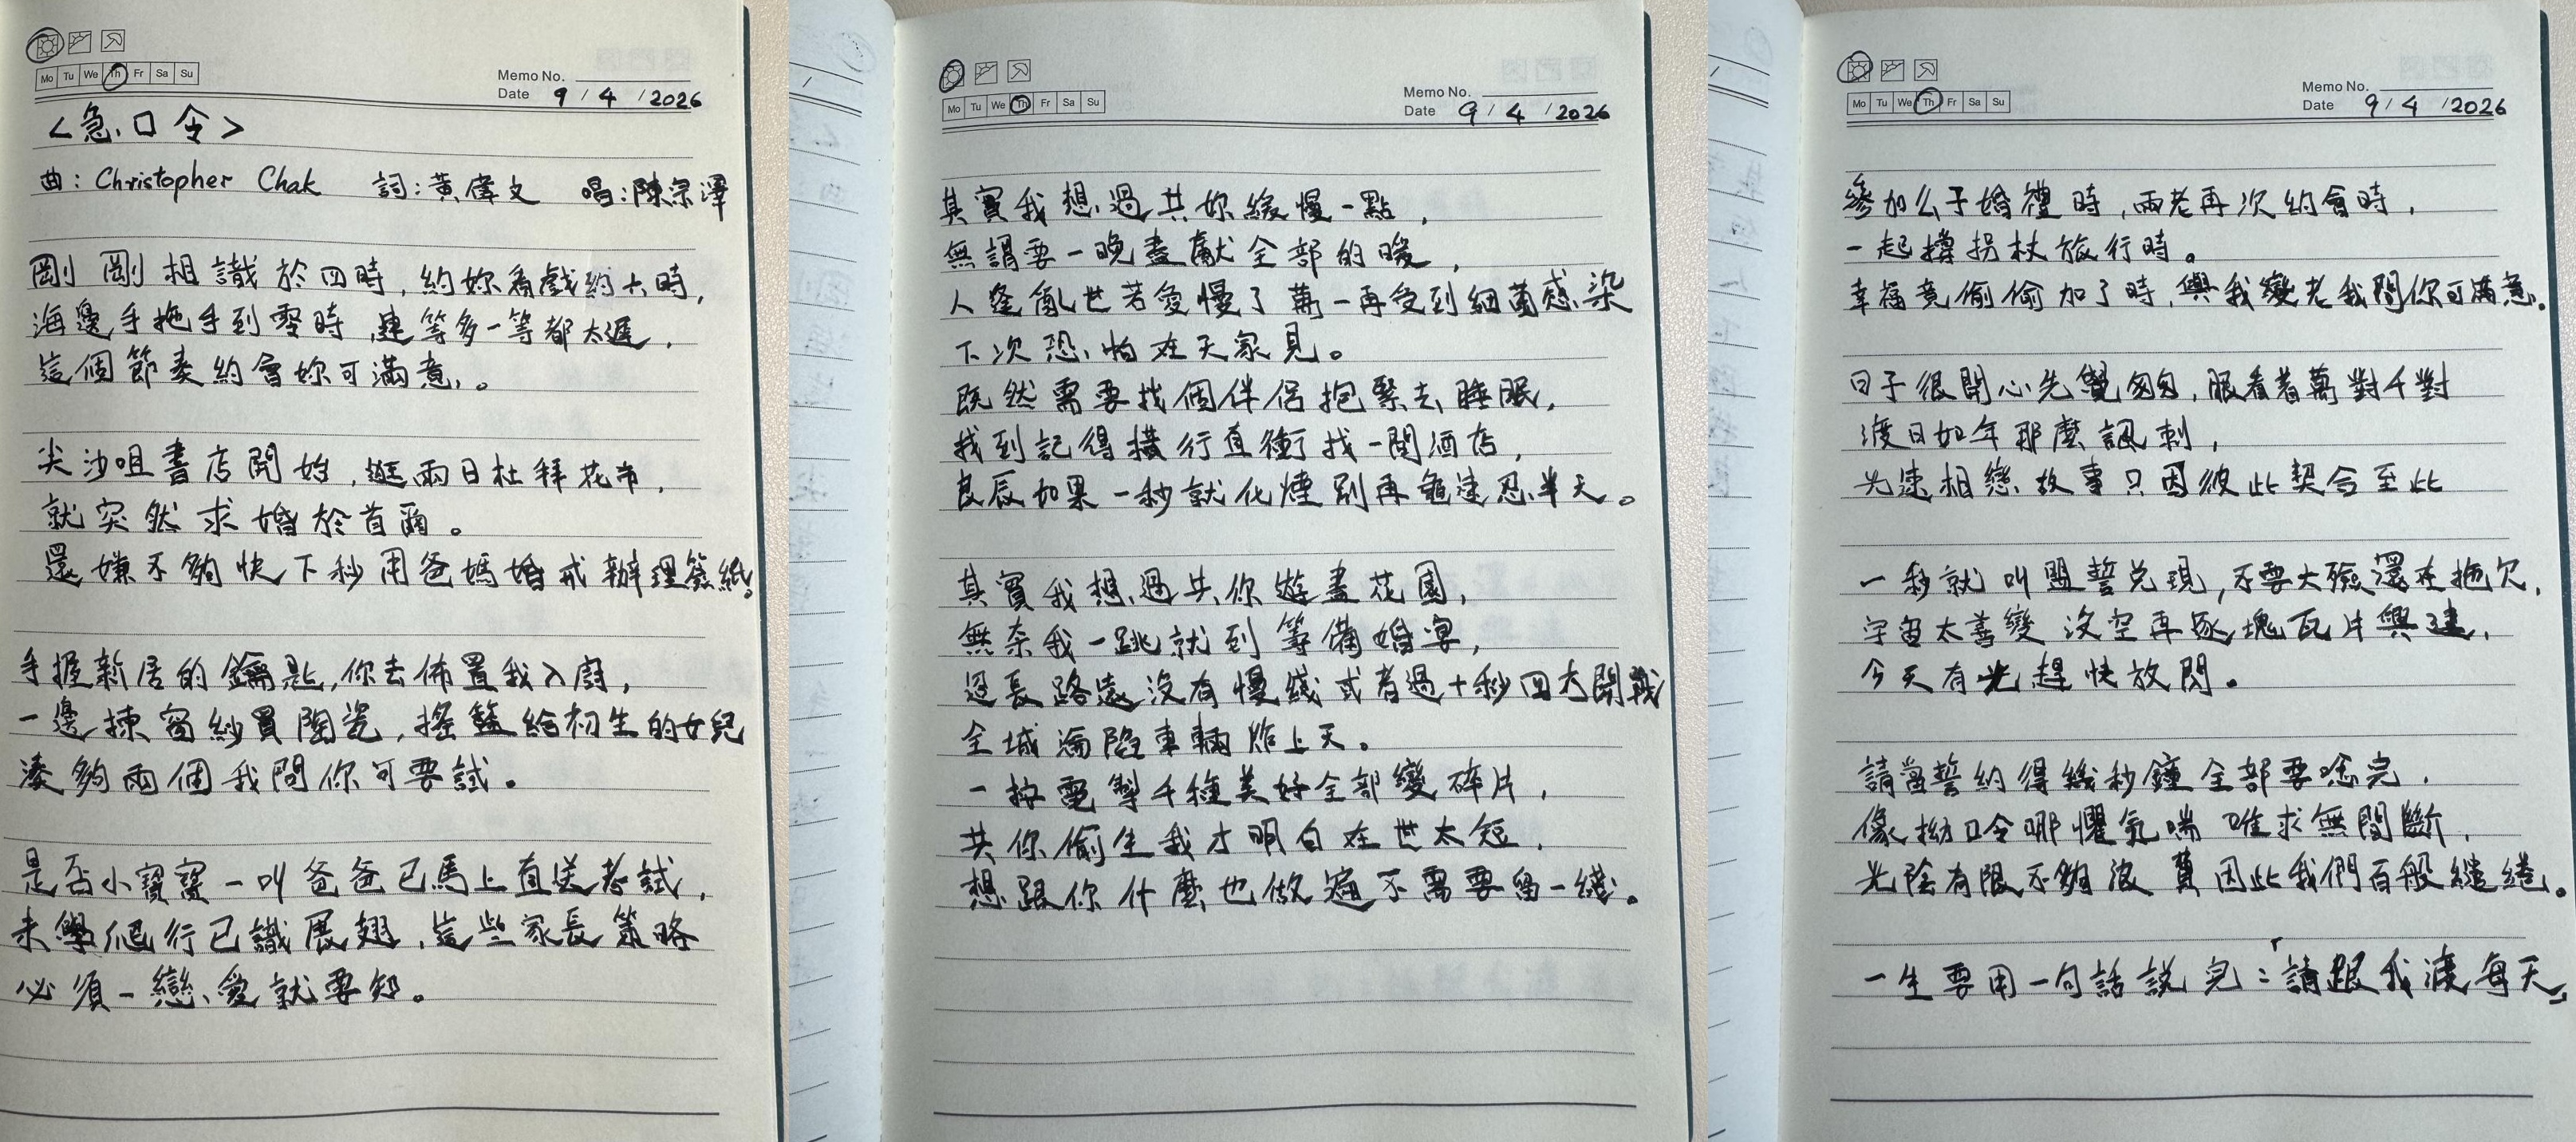 Mo Tu We Th Fr Sa Su
Memo No.
Date 9 / 4 / 2026
<急口令>
曲: Christopher Chak 詞:黃偉文 唱:陳宗澤
剛剛相識於四時,約妳看戲約六時,
海邊手拖手到零時,連等多一等都太遲,
這個節奏約會妳可滿意。
尖沙咀書店開始,逛兩日杜拜花市,
就突然求婚於首爾。
還嫌不夠快下秒用爸媽婚戒辦理簽紙。
手握新居的鑰匙,你去佈置我入廚,
一邊揀窗紗買陶瓷,搖籃給初生的女兒
湊夠兩個我問你可要試。
是否小寶寶一叫爸爸已馬上直送考試,
未學爬行已識展翅,這些家長策略
必須一戀愛就要知。
Mo Tu We Th Fr Sa Su
Memo No.
Date 9 / 4 / 2026
其實我想過共妳緩慢一點,
無謂要一晚盡獻全部的暖,
人逢亂世若愛慢了萬一再受到細菌感染
下次恐怕在天家見。
既然需要找個伴侶抱緊去睡眠,
找到記得橫行直衝找一間酒店,
良辰如果一秒就化煙別再龜速忍半天。
其實我想過共你遊盡花園,
無奈我一跳就到籌備婚宴,
迢長路遠沒有慢綫或者過十秒四方開戰
全城淪陷車輛炸上天。
一按電掣千種美好全部變碎片,
共你偷生我才明白在世太短,
想跟你什麼也做遍不需要留一綫。
Mo Tu We Th Fr Sa Su
Memo No.
Date 9 / 4 / 2026
參加公子婚禮時,兩老再次約會時,
一起撐拐杖旅行時。
幸福竟偷偷加了時,與我變老我問你可滿意。
日子很開心先覺匆匆,眼看着萬對千對
渡日如年那麼諷刺,
光速相戀故事只因彼此契合至此
一秒就叫盟誓兌現,不要大殮還在拖欠,
宇宙太善變 沒空再逐塊瓦片興建,
今天有光趕快放閃。
請當誓約得幾秒鐘全部要唸完,
像拗口令哪懼氣喘 唯求無間斷,
光陰有限不夠浪費因此我們百般繾綣。
一生要用一句話説完:「請跟我渡每天」